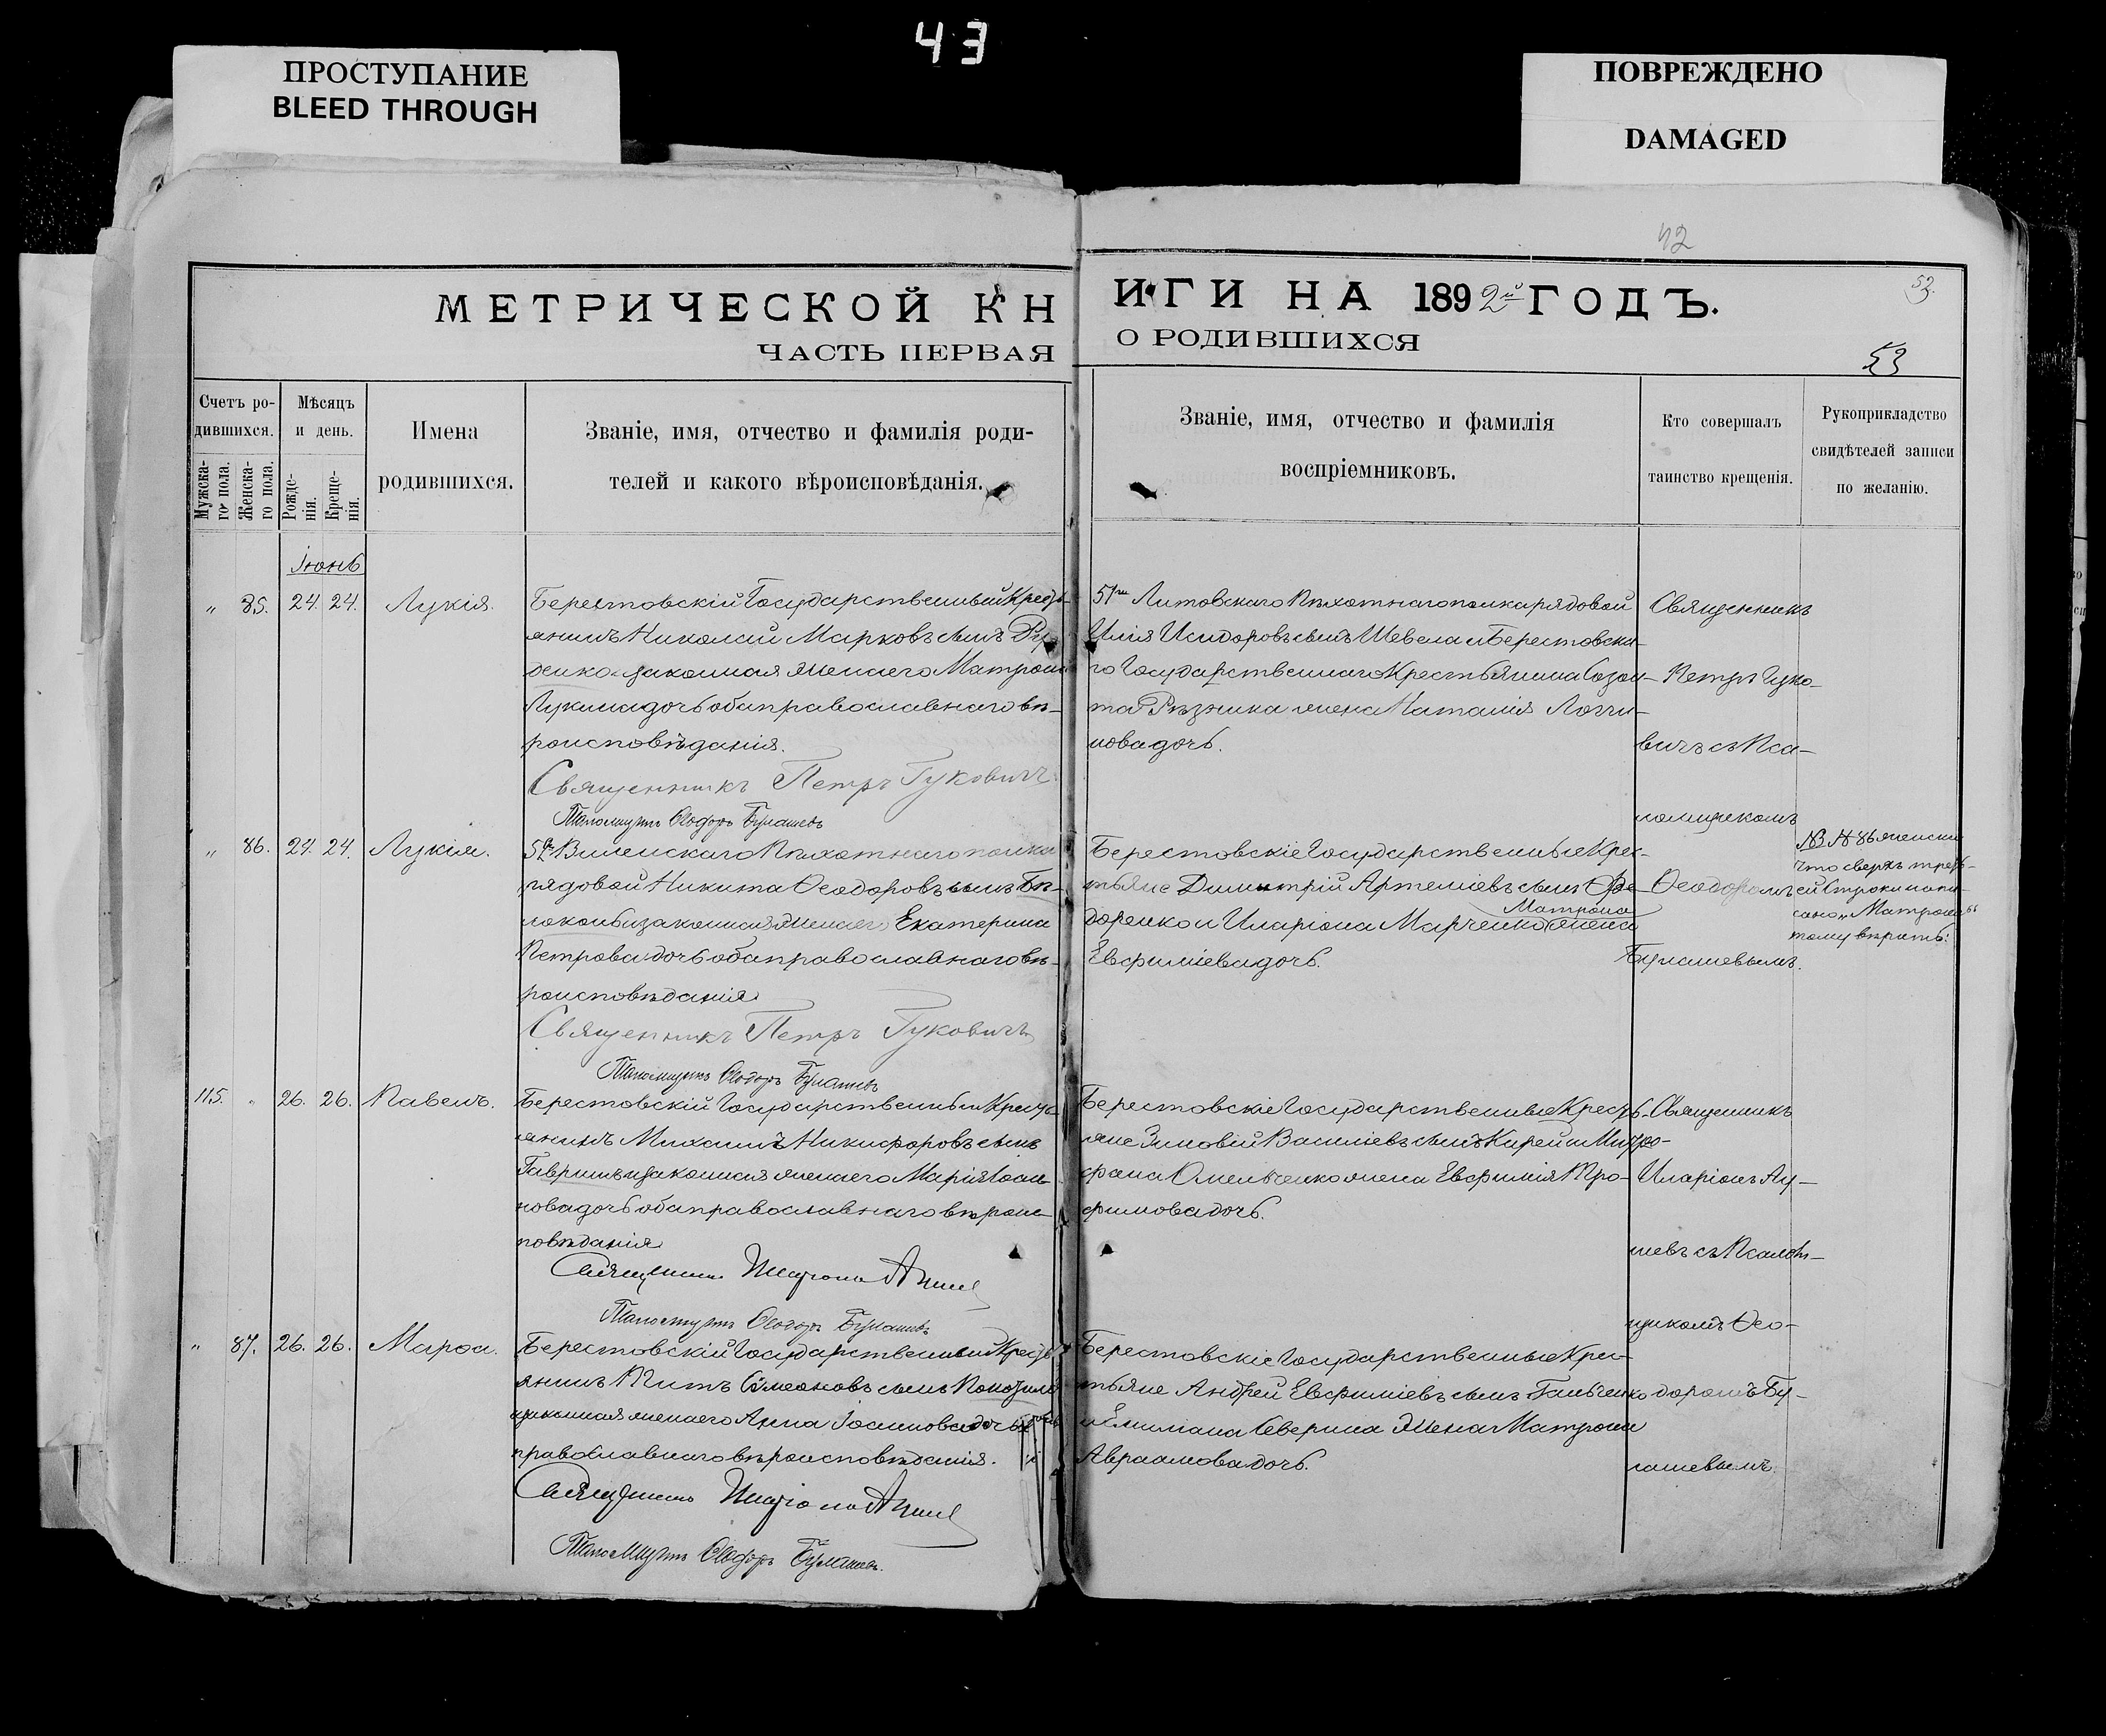 43
ПРОСТУПАНИЕ
BLEED THROUGH
ПОВРЕЖДЕНО
DAMAGED
42
МЕТРИЧЕСКОЙ КНИГИ НА 1892й ГОДЪ.
53.
ЧАСТЬ ПЕРВАЯ О РОДИВШИХСЯ
53
Счетъ ро-
дившихся.
Мужска-
го пола.
Женска-
го пола.
Мѣсяцъ
и день.
Рожде-
нія.
Креще-
нія.
Имена
родившихся.
Званіе, имя, отчество и фамилія роди-
телей и какого вѣроисповѣданія.
Званіе, имя, отчество и фамилія
воспріемниковъ.
Кто совершалъ
таинство крещенія.
Рукоприкладство
свидѣтелей записи
по желанію.
Іюнь
„ 85. 24. 24. Лукія.
Берестовскій Государственный Кресть-
янинъ Николай Марковъ сынъ Ру-
денко и законная жена его Матрона
Лукина дочь оба православнаго вѣ-
роисповѣданія.
Священникъ Петръ Гуковичъ
Псаломщикъ Ѳеодоръ Булашевъ
51го Литовскаго Пѣхотнаго полка рядовой
Илія Исидоровъ сынъ Шевела и Берестовска-
го Государственнаго Крестьянина Созон-
та Рѣзника жена Наталія Логги-
нова дочь.
Священникъ
Петръ Гуко-
вичъ съ Пса-
ломщикомъ
„ 86. 24. 24. Лукія.
52го Виленскаго Пѣхотнаго полка
рядовой Никита Ѳеодоровъ сынъ Бѣ-
локонь и законная жена его Екатерина
Петрова дочь оба православнаго вѣ-
роисповѣданія
Священникъ Петръ Гуковичъ
Псаломщикъ Ѳеодоръ Булашевъ
Берестовскіе Государственные Крес-
тьяне Димитрій Артеміевъ сынъ Фе-
Матрона
доренко и Иларіона Марченко жена
Евфиміева дочь.
Ѳеодоромъ
Булашевымъ.
NB № 86 женск.
что сверхъ треть-
ей строки напи-
сано „Матрона"
тому вѣрить.
115. „ 26. 26. Павелъ.
Берестовскій Государственный Кресть-
янинъ Михаилъ Никифоровъ сынъ
Гавришъ и законная жена его Марія Іоан-
нова дочь оба православнаго вѣроис-
повѣданія
Священникъ Иларіонъ
Псаломщикъ Ѳеодоръ Булашевъ
Берестовскіе Государственные Кресть-
яне Зиновій Василіевъ сынъ Кирей и Митро-
фана Омельченко жена Евфимія Тро-
фимова дочь.
Священникъ
Иларіонъ
съ Псалом-
щикомъ Ѳео-
доромъ Бу-
лашевымъ
„ 87. 26. 26. Марѳа.
Берестовскій Государственный Кресть-
янинъ Титъ Симеоновъ сынъ
законная жена его Анна Іоаннова дочь оба
православнаго вѣроисповѣданія.
Священникъ Иларіонъ
Псаломщикъ Ѳеодоръ Булашевъ.
Берестовскіе Государственные Крес-
тьяне Андрей Евфиміевъ сынъ Гальченко
и Емиліана Северина жена Матрона
Авраамова дочь.